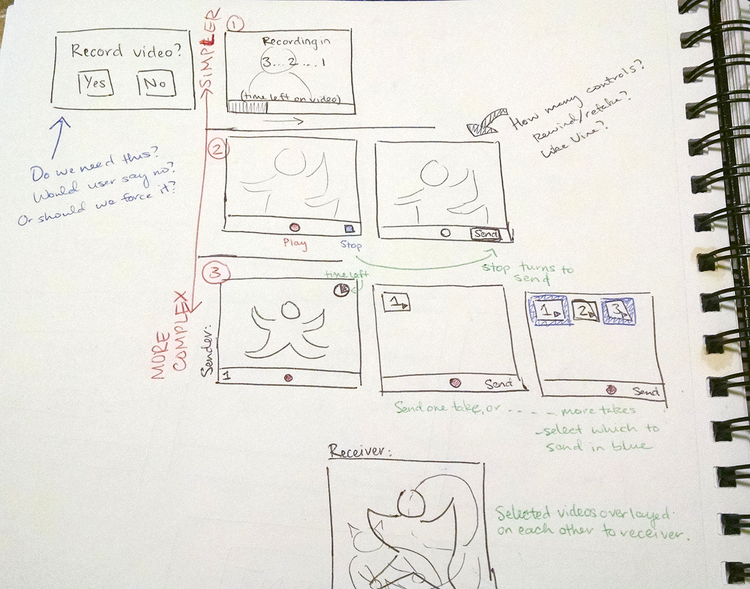 Record video?
Yes No
Do we need this?
Would user say no?
Or should we force it?
SIMPLER
MORE
COMPLEX
1
Recording in
3...2...1
(time left on video)
How many controls?
Rewind/retake?
like Vine?
2
Play
Stop
Send
stop turns to
send
3
time left
Sender:
1
1
Send
1 2 3
Send
Send one take, or - - - - more takes
- select which to
send in blue
Receiver:
Selected videos overlayed
on each other to receiver.